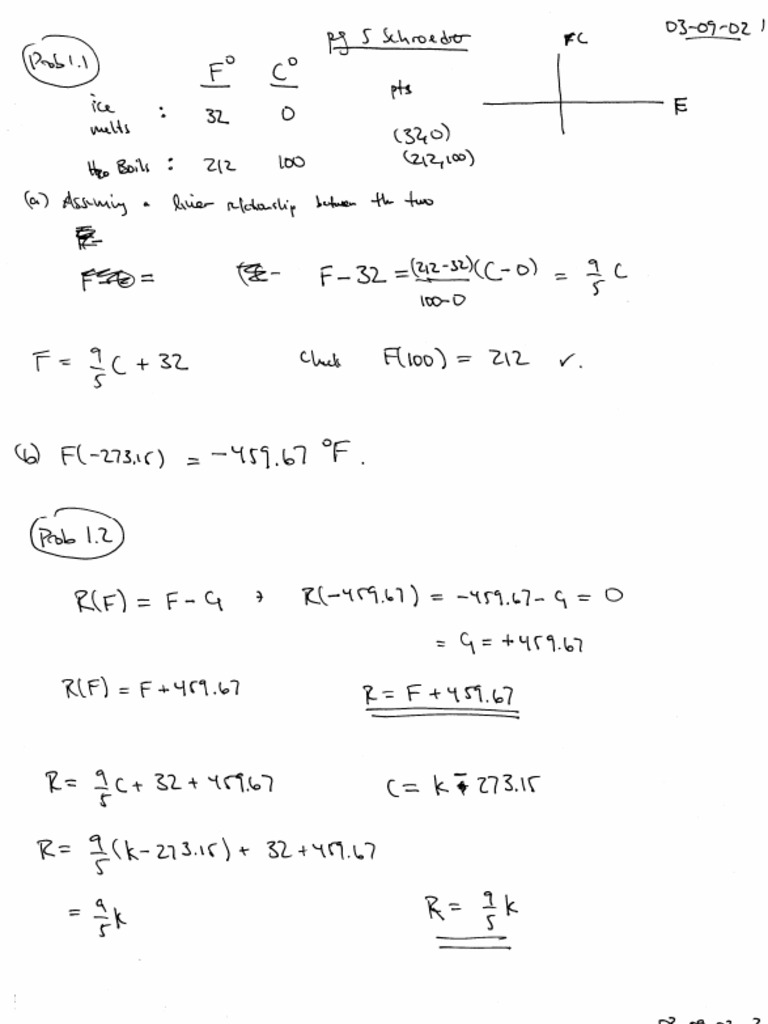 pg 5 Schroeder
03-09-02 1
Prob 1.1
F° C° pts
ice melts : 32 0 (32,0)
H2O Boils : 212 100 (212,100)
FC
F
(a) Assuming a linier relationship between the two
F =
F - 32 = (212-32)/(100-0) (C - 0) = 9/5 C
F = 9/5 C + 32 Check F(100) = 212 ✓.
(b) F(-273.15) = -459.67 °F.
Prob 1.2
R(F) = F - G , R(-459.67) = -459.67 - G = 0
= G = +459.67
R(F) = F + 459.67 R = F + 459.67
R = 9/5 C + 32 + 459.67 C = K - 273.15
R = 9/5 (K - 273.15) + 32 + 459.67
= 9/5 K R = 9/5 K